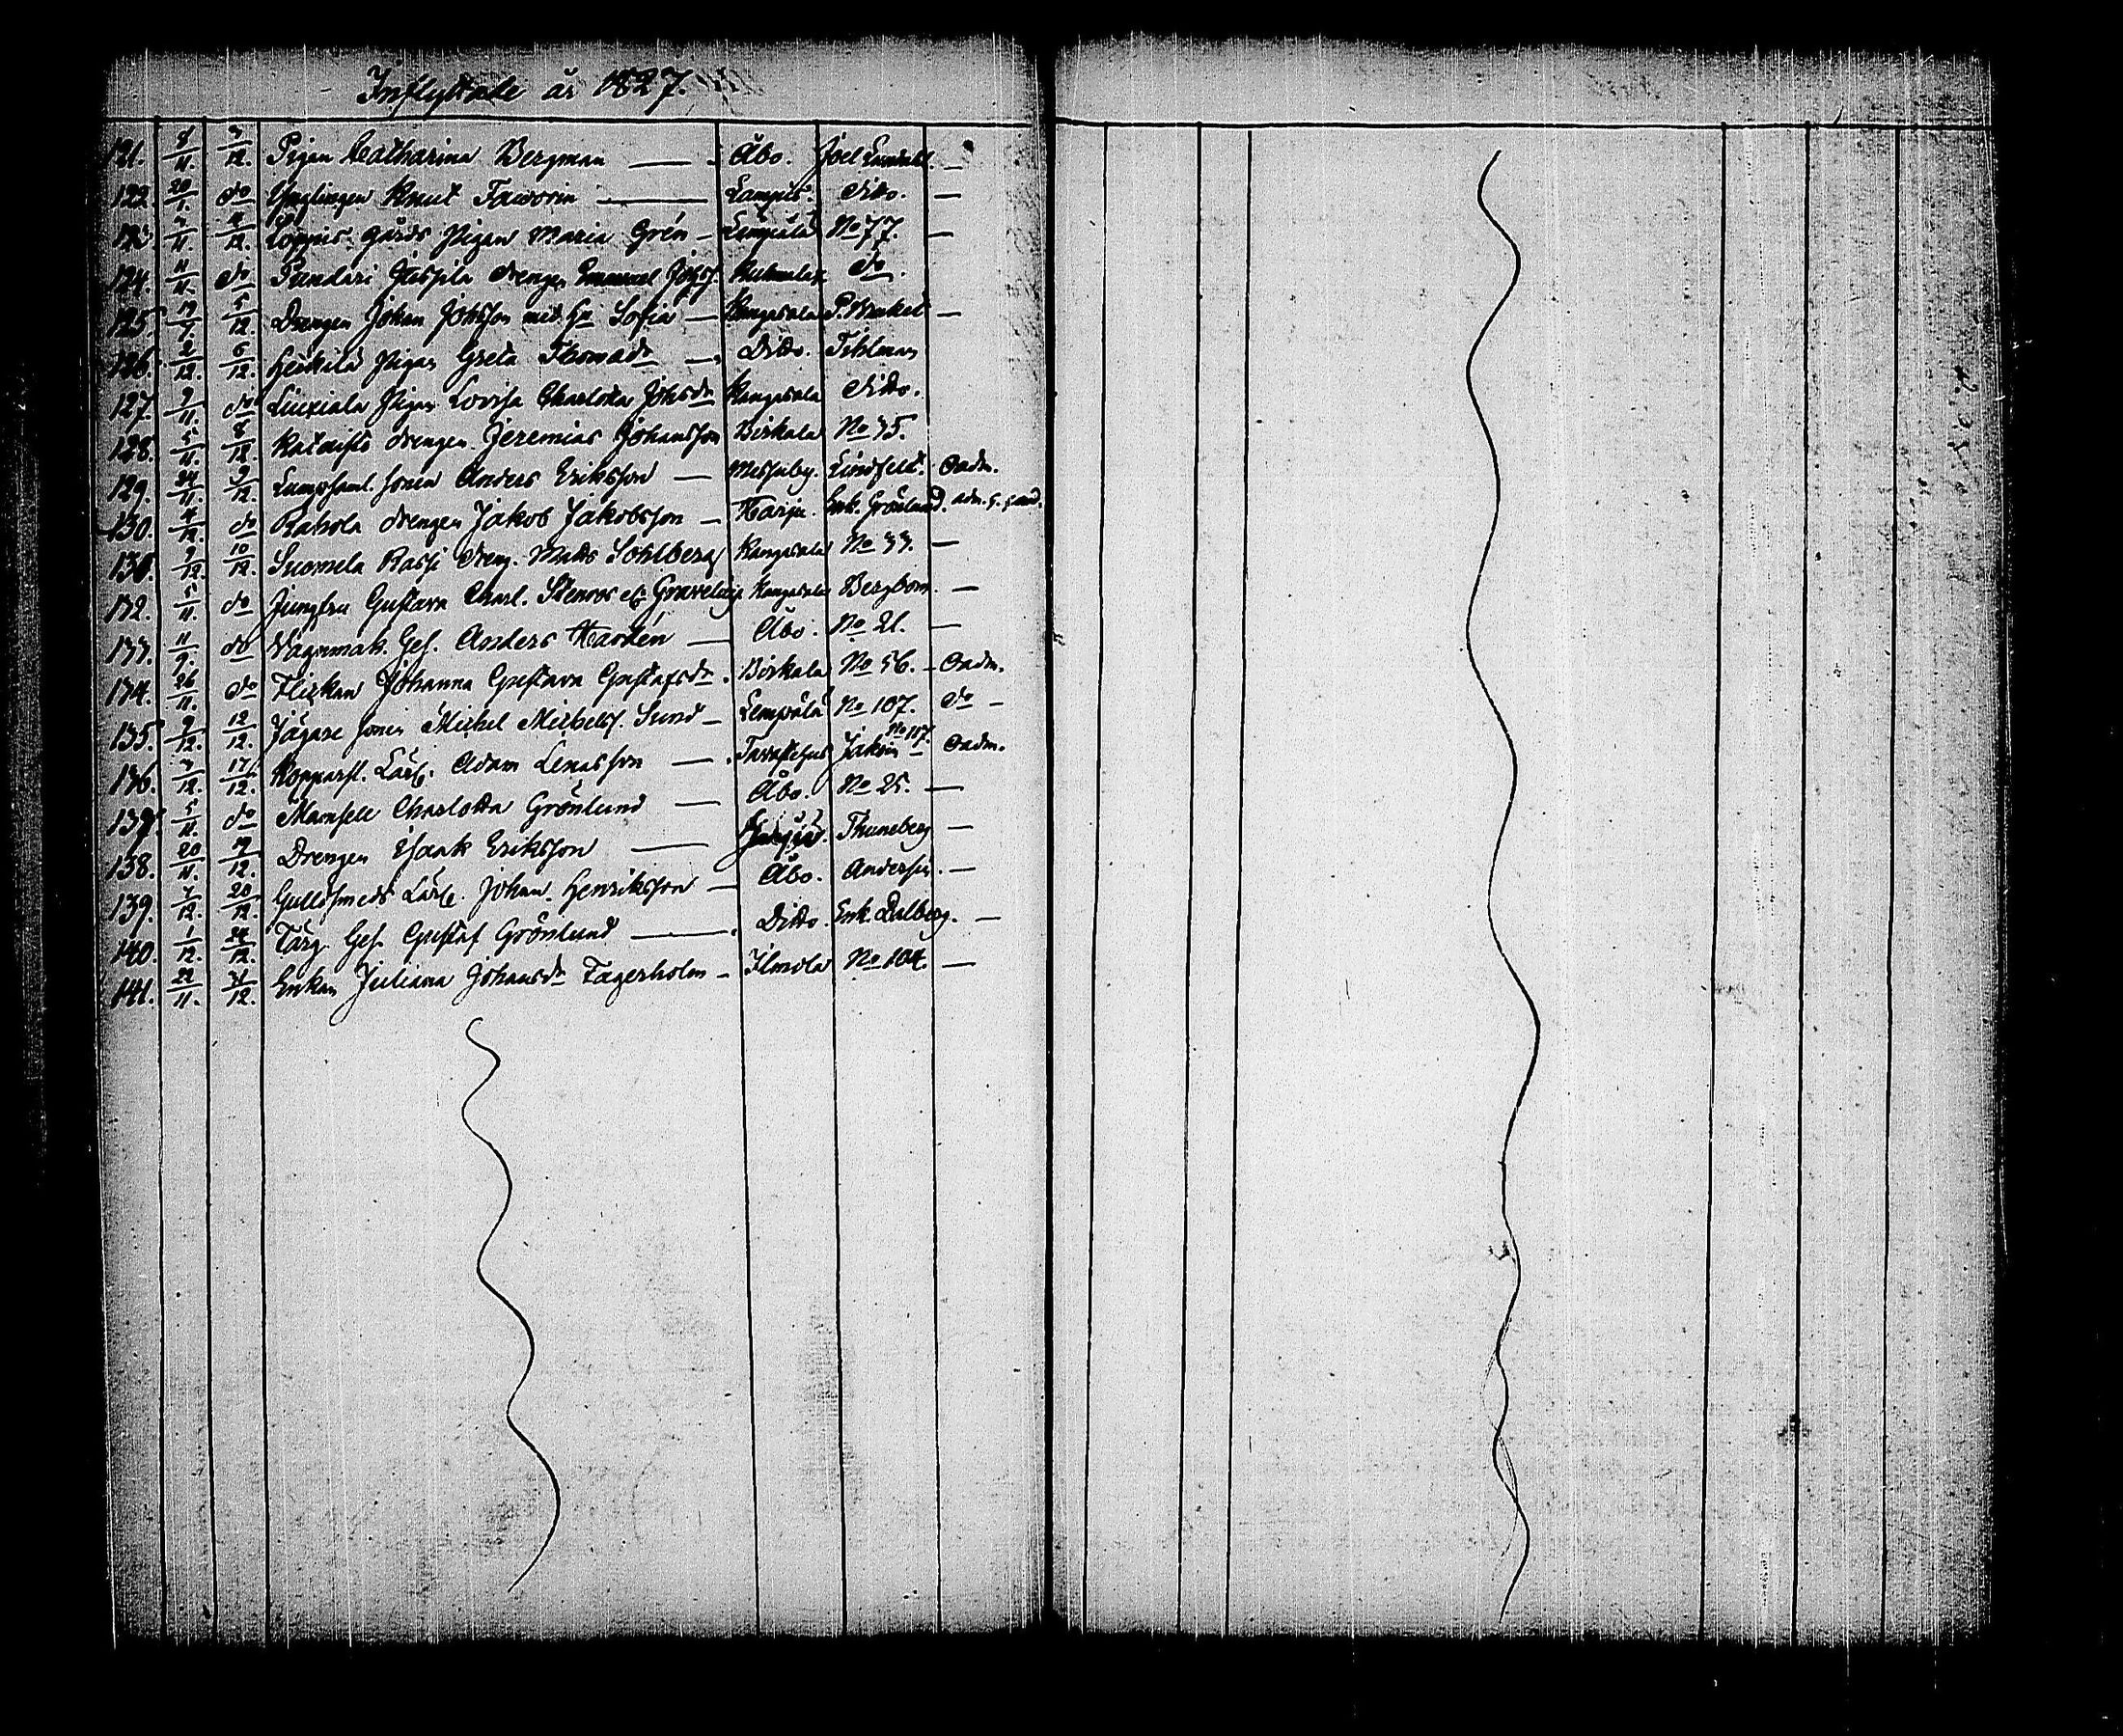 Inflyttade år 1827.
121. 8/11. 3/12. Pigan Catharina Bergman — Åbo. Joel Lundahl. —
122. 20/1. do Ynglingen Knut Faworin — Lampis. Ditto. —
123. 3/11. 4/12. Loppis gårds Pigan Maria Grén — Lempälä No 77. —
124. 11/11. do Pundari Juspila drengen Emanuel Johss. do.
125. 5/12. Drengen Johan Johsson med Hu Sofia — Kangasala —
126. 2/12. 6/12. Heikkilä Pigan Greta Thomadr — Ditto. Tihlman
127. 9/11. do Liuxiala Pigan Lovisa Charlotta Johsdr Kangasala Ditto.
128. 5/11. 8/12. drengen Jeremias Johansson Birkala No 35.
129. 24/11. 9/12. Lumpsaml. sonen Anders Eriksson — Messuby. Lindfelt. Oadm.
130. 4/12. do Rahola drengen Jakob Jakobsson — Harju. Enk. Grönlund. adm. g. gand.
131. 9/12. 10/12. Suomela Rassi dreng. Matts Sohlberg Kangasala No 33. —
132. 5/11. do Jungfru Gustava Charl. Stenroos el. Kangasala Bergbom. —
133. 11/9. do Vagnmak. Ges. Anders Hartén — Åbo. No 21. —
134. 26/11. do Flickan Johanna Gustava Gustafsdr. Birkala No 56. — Oadm.
135. 9/12. 12/12. Jägare sonen Michel Michelss. Sund — Lempälä No 107. do —
136. 3/12. 17/12. Kopparsl. Lärl. Adam Lenasson — Tavastehus No 117. Oadm.
137. 5/11. do Mamsell Charlotta Grönlund — Åbo. No 25. —
138. 20/11. 19/12. Drengen Isaak Eriksson — Thuneberg —
139. 7/12. 20/12. Gulldsmeds Lärl. Johan Henriksson — Åbo. Andersin. —
140. 1/12. 24/12. Färg. Ges. Gustaf Grönlund — Ditto. Enk. Dalberg. —
141. 22/11. 31/12. Enkan Juliana Johansdr Fagerholm — Ilmola No 104. —